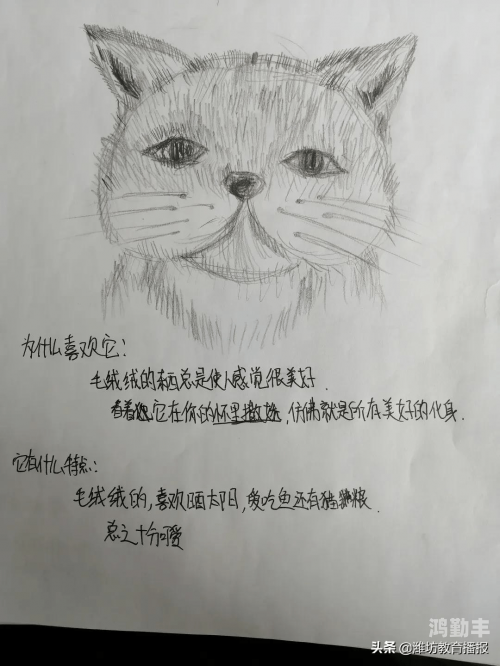 为什么喜欢它：
毛绒绒的东西总是使人感觉很美好.
看着它在你的怀里撒娇,仿佛就是所有美好的化身.
它有什么特点：
毛绒绒的,喜欢晒太阳,爱吃鱼还有猫粮.
总之十分可爱
鸿勤丰
头条@潍坊教育播报